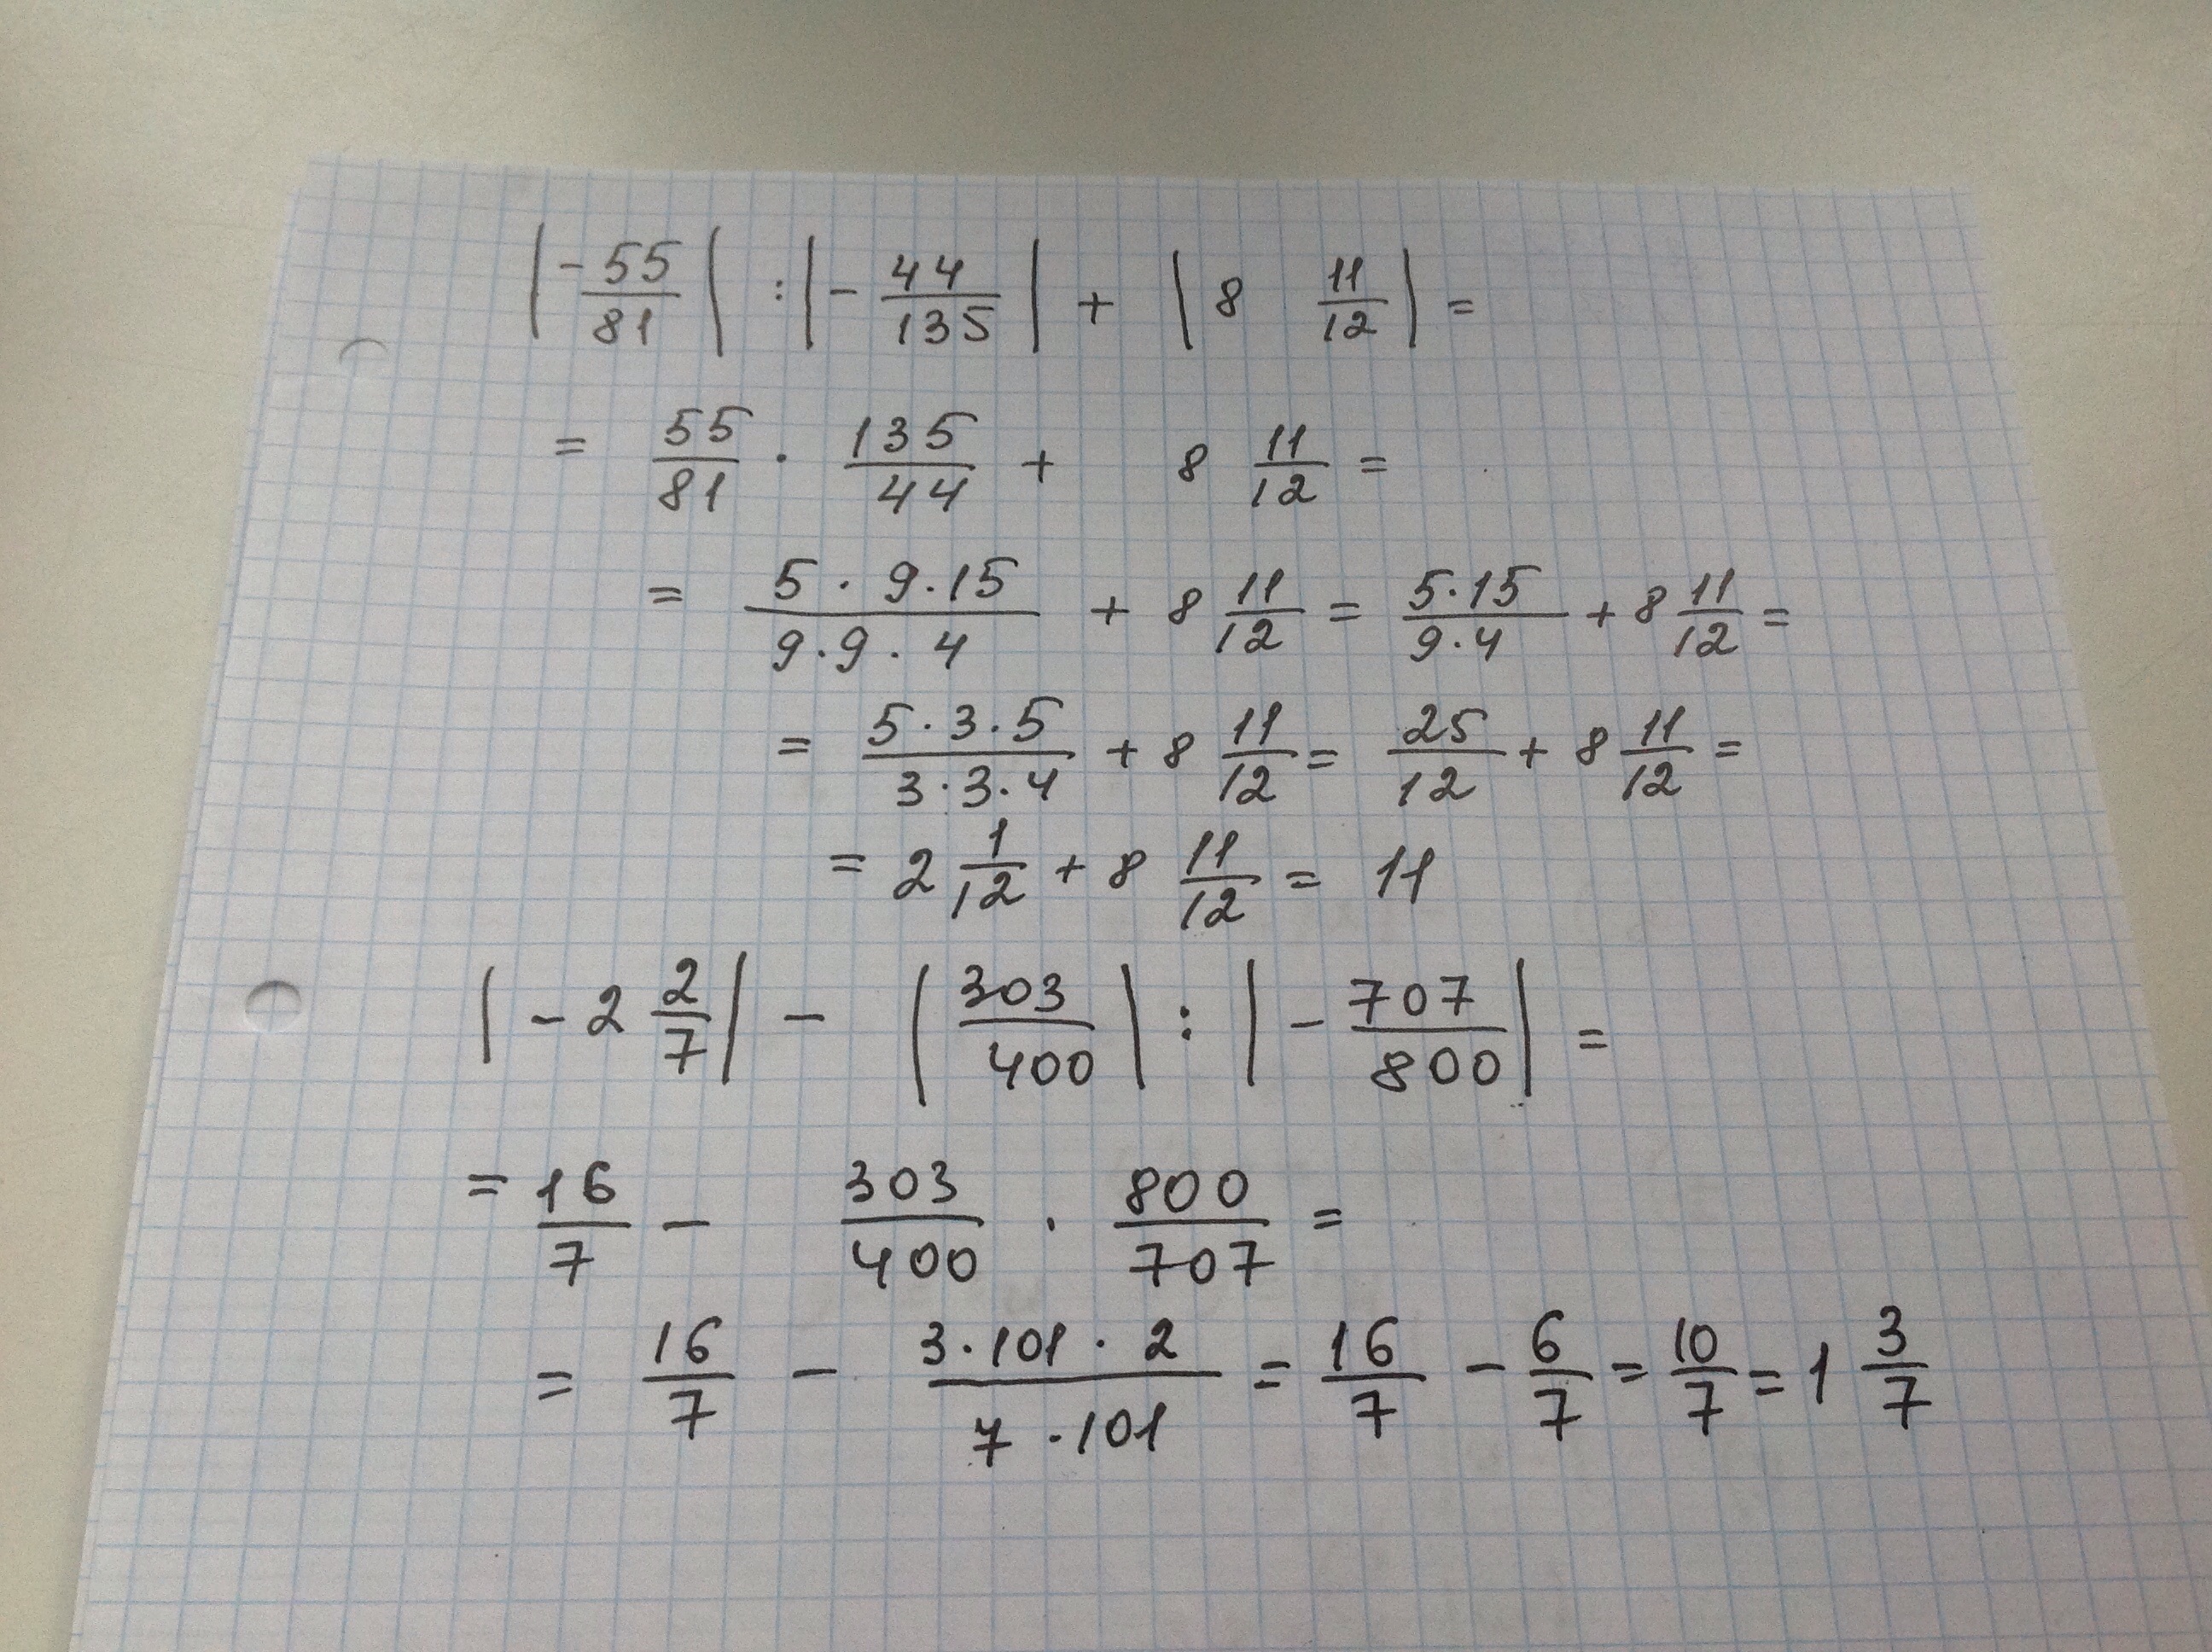 |-55/81| : |-44/135| + |8 11/12| =
= 55/81 · 135/44 + 8 11/12 =
= 5·9·15/9·9·4 + 8 11/12 = 5·15/9·4 + 8 11/12 =
= 5·3·5/3·3·4 + 8 11/12 = 25/12 + 8 11/12 =
= 2 1/12 + 8 11/12 = 11
|-2 2/7| - |303/400| : |-707/800| =
= 16/7 - 303/400 · 800/707 =
= 16/7 - 3·101·2/7·101 = 16/7 - 6/7 = 10/7 = 1 3/7